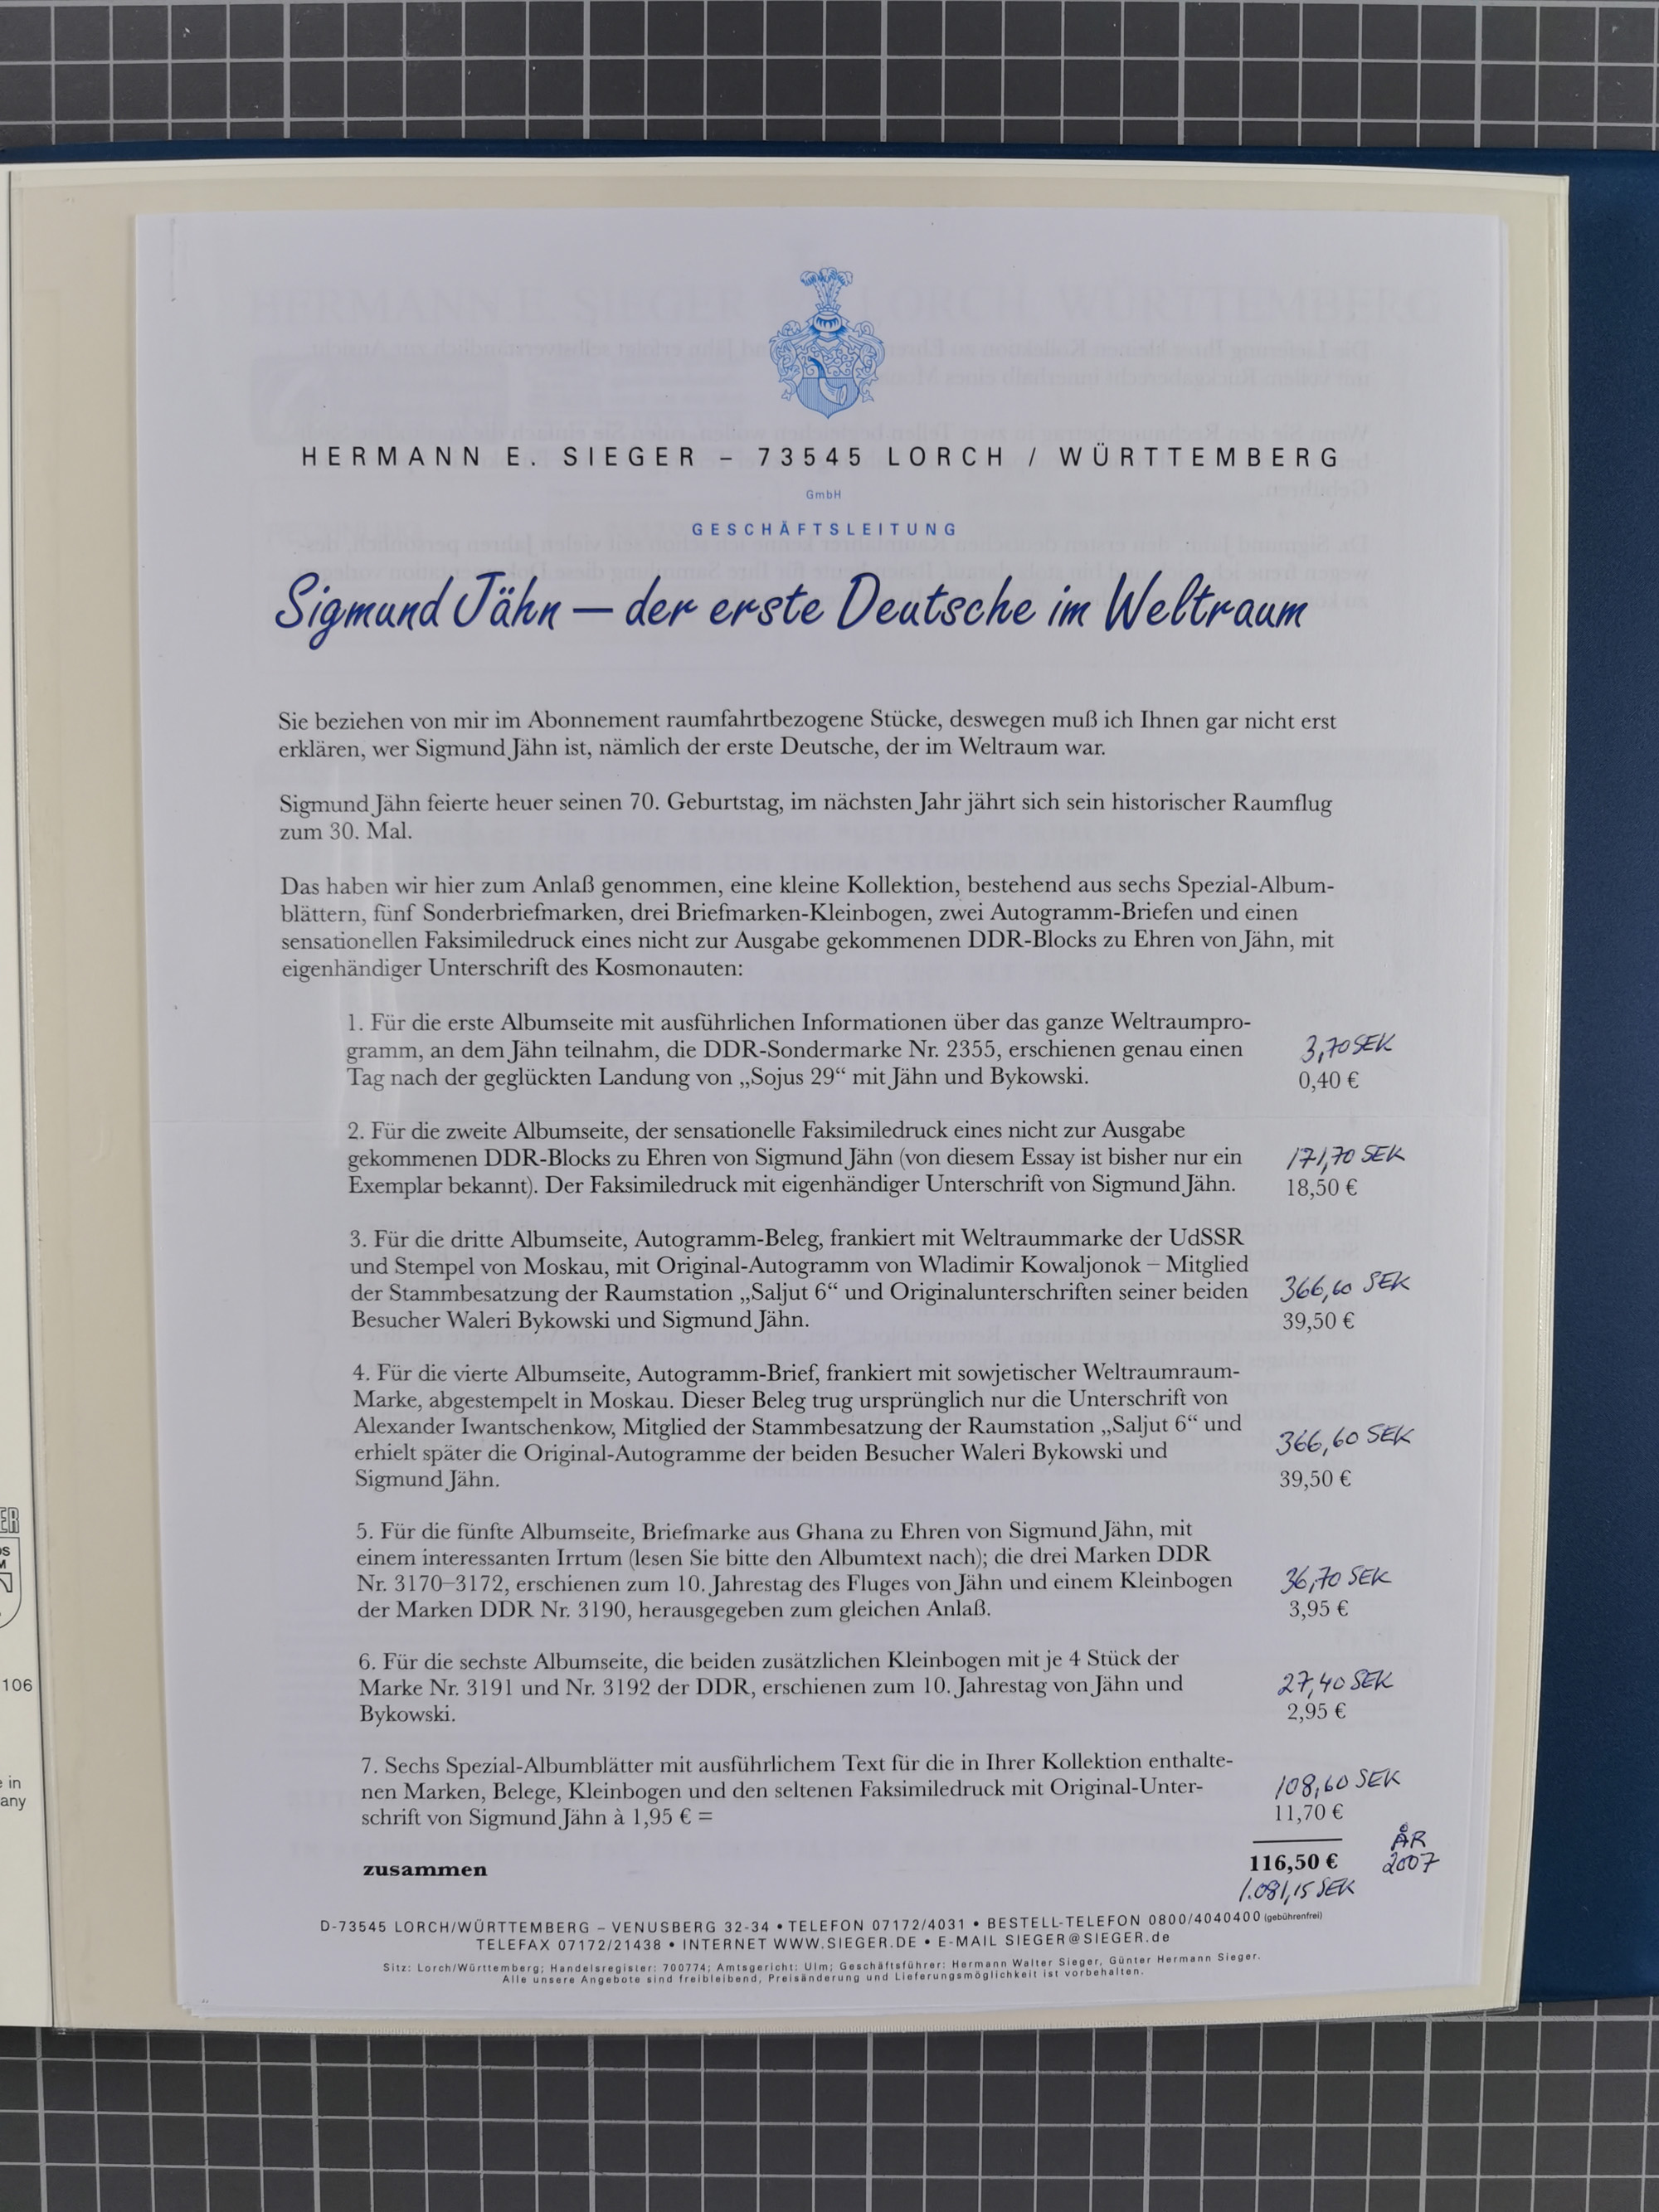 HERMANN E. SIEGER – 73545 LORCH / WÜRTTEMBERG
GmbH
GESCHÄFTSLEITUNG
Sigmund Jähn – der erste Deutsche im Weltraum
Sie beziehen von mir im Abonnement raumfahrtbezogene Stücke, deswegen muß ich Ihnen gar nicht erst
erklären, wer Sigmund Jähn ist, nämlich der erste Deutsche, der im Weltraum war.
Sigmund Jähn feierte heuer seinen 70. Geburtstag, im nächsten Jahr jährt sich sein historischer Raumflug
zum 30. Mal.
Das haben wir hier zum Anlaß genommen, eine kleine Kollektion, bestehend aus sechs Spezial-Album-
blättern, fünf Sonderbriefmarken, drei Briefmarken-Kleinbogen, zwei Autogramm-Briefen und einen
sensationellen Faksimiledruck eines nicht zur Ausgabe gekommenen DDR-Blocks zu Ehren von Jähn, mit
eigenhändiger Unterschrift des Kosmonauten:
1. Für die erste Albumseite mit ausführlichen Informationen über das ganze Weltraumpro-
gramm, an dem Jähn teilnahm, die DDR-Sondermarke Nr. 2355, erschienen genau einen
Tag nach der geglückten Landung von „Sojus 29“ mit Jähn und Bykowski.
3,70 SEK
0,40 €
2. Für die zweite Albumseite, der sensationelle Faksimiledruck eines nicht zur Ausgabe
gekommenen DDR-Blocks zu Ehren von Sigmund Jähn (von diesem Essay ist bisher nur ein
Exemplar bekannt). Der Faksimiledruck mit eigenhändiger Unterschrift von Sigmund Jähn.
171,70 SEK
18,50 €
3. Für die dritte Albumseite, Autogramm-Beleg, frankiert mit Weltraummarke der UdSSR
und Stempel von Moskau, mit Original-Autogramm von Wladimir Kowaljonok – Mitglied
der Stammbesatzung der Raumstation „Saljut 6“ und Originalunterschriften seiner beiden
Besucher Waleri Bykowski und Sigmund Jähn.
366,60 SEK
39,50 €
4. Für die vierte Albumseite, Autogramm-Brief, frankiert mit sowjetischer Weltraumraum-
Marke, abgestempelt in Moskau. Dieser Beleg trug ursprünglich nur die Unterschrift von
Alexander Iwantschenkow, Mitglied der Stammbesatzung der Raumstation „Saljut 6“ und
erhielt später die Original-Autogramme der beiden Besucher Waleri Bykowski und
Sigmund Jähn.
366,60 SEK
39,50 €
5. Für die fünfte Albumseite, Briefmarke aus Ghana zu Ehren von Sigmund Jähn, mit
einem interessanten Irrtum (lesen Sie bitte den Albumtext nach); die drei Marken DDR
Nr. 3170–3172, erschienen zum 10. Jahrestag des Fluges von Jähn und einem Kleinbogen
der Marken DDR Nr. 3190, herausgegeben zum gleichen Anlaß.
36,70 SEK
3,95 €
6. Für die sechste Albumseite, die beiden zusätzlichen Kleinbogen mit je 4 Stück der
Marke Nr. 3191 und Nr. 3192 der DDR, erschienen zum 10. Jahrestag von Jähn und
Bykowski.
27,40 SEK
2,95 €
7. Sechs Spezial-Albumblätter mit ausführlichem Text für die in Ihrer Kollektion enthalte-
nen Marken, Belege, Kleinbogen und den seltenen Faksimiledruck mit Original-Unter-
schrift von Sigmund Jähn à 1,95 € =
108,60 SEK
11,70 €
zusammen
116,50 €
1.081,15 SEK
ÅR
2007
D-73545 LORCH/WÜRTTEMBERG – VENUSBERG 32-34 • TELEFON 07172/4031 • BESTELL-TELEFON 0800/4040400 (gebührenfrei)
TELEFAX 07172/21438 • INTERNET WWW.SIEGER.DE • E-MAIL SIEGER@SIEGER.de
Sitz: Lorch/Württemberg; Handelsregister: 700774; Amtsgericht: Ulm; Geschäftsführer: Hermann Walter Sieger, Günter Hermann Sieger.
Alle unsere Angebote sind freibleibend, Preisänderung und Lieferungsmöglichkeit ist vorbehalten.
106